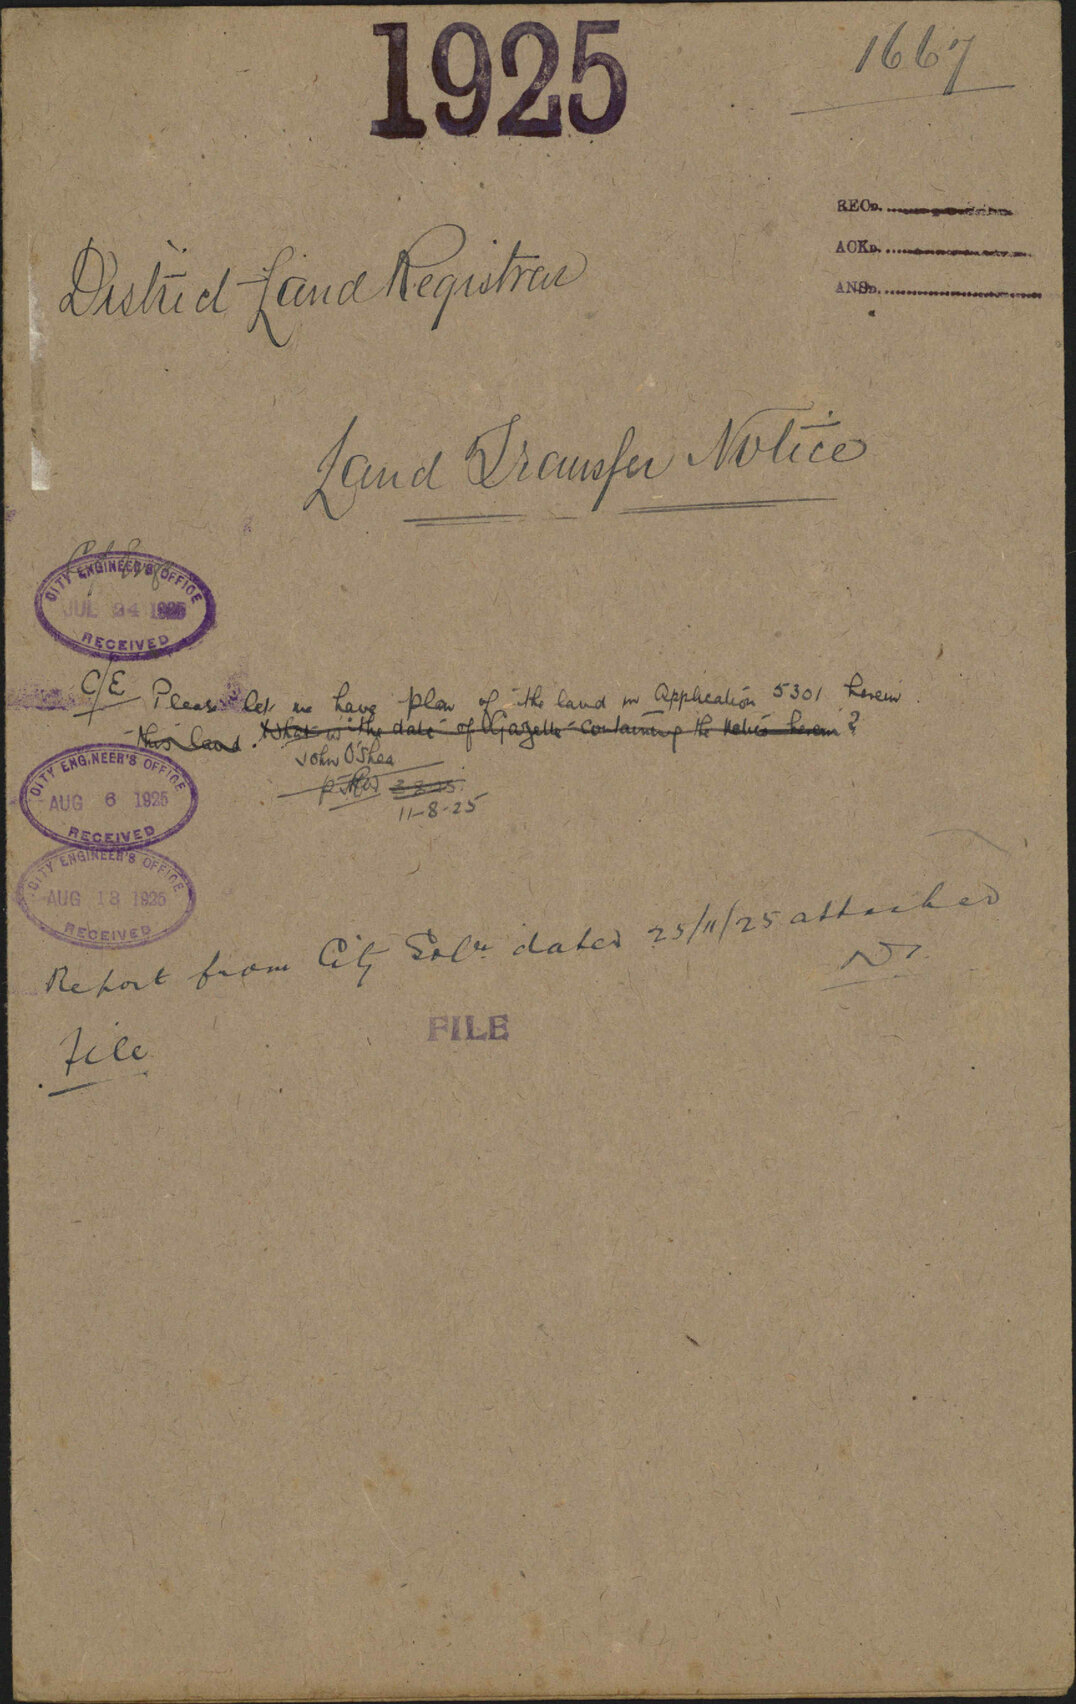 1925
1667
RECD.
ACKD.
ANSD.
District Land Registrar
Land Transfer Notice
CITY ENGINEER'S OFFICE
JUL 24 1925
RECEIVED
C/E Please let me have plan of the land in Application 5301 herein
this land. & what is the date of Gazette containing the notice herein?
John O'Shea
11-8-25
CITY ENGINEER'S OFFICE
AUG 6 1925
RECEIVED
CITY ENGINEER'S OFFICE
AUG 13 1925
RECEIVED
Report from City Solr. dated 25/11/25 attached
File
FILE